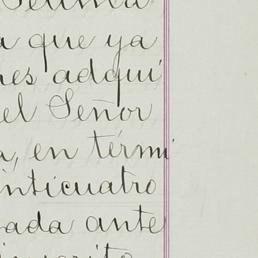 a que ya
nes adqui
el Señor
a, en térmi
inticuatro
ada ante